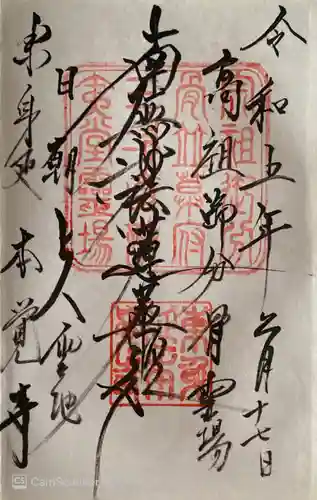 令和五年 六月十七日
高祖御分骨霊場
南無妙法蓮華経
日朝上人霊地
東身延 本覚寺
CS CamScanner